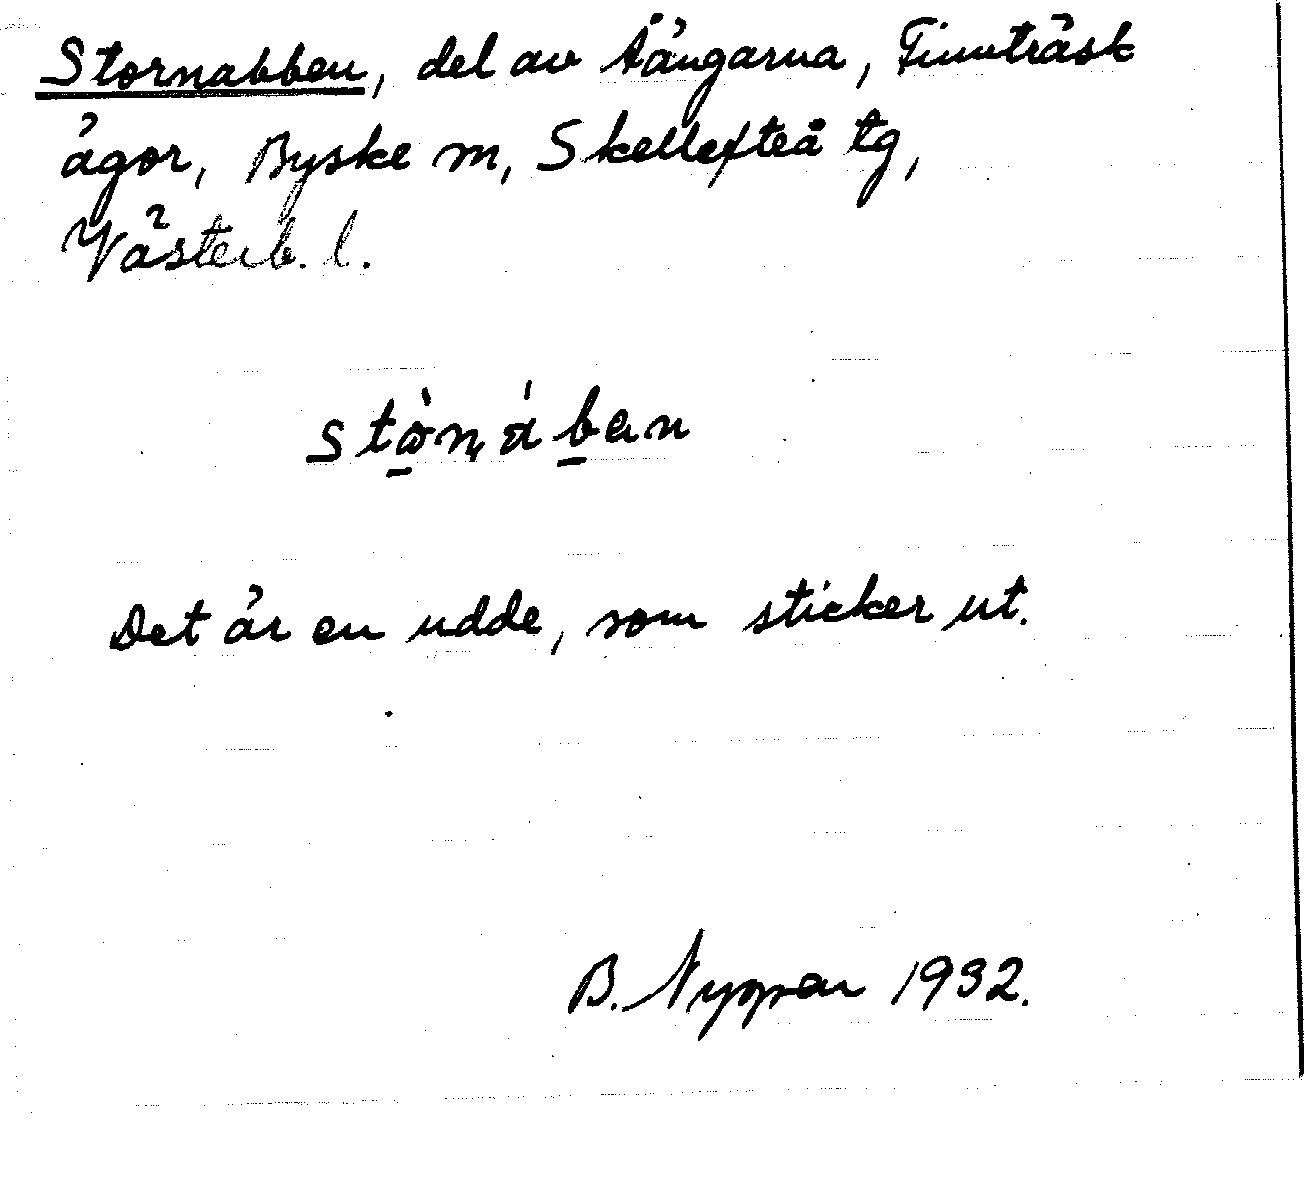 Stornabben, del av Åängarna, Finnträsk
ägor, Byske m, Skellefteå tg,
Västerb. l.
Det är en udde, som sticker ut.
B. Nygren 1932.